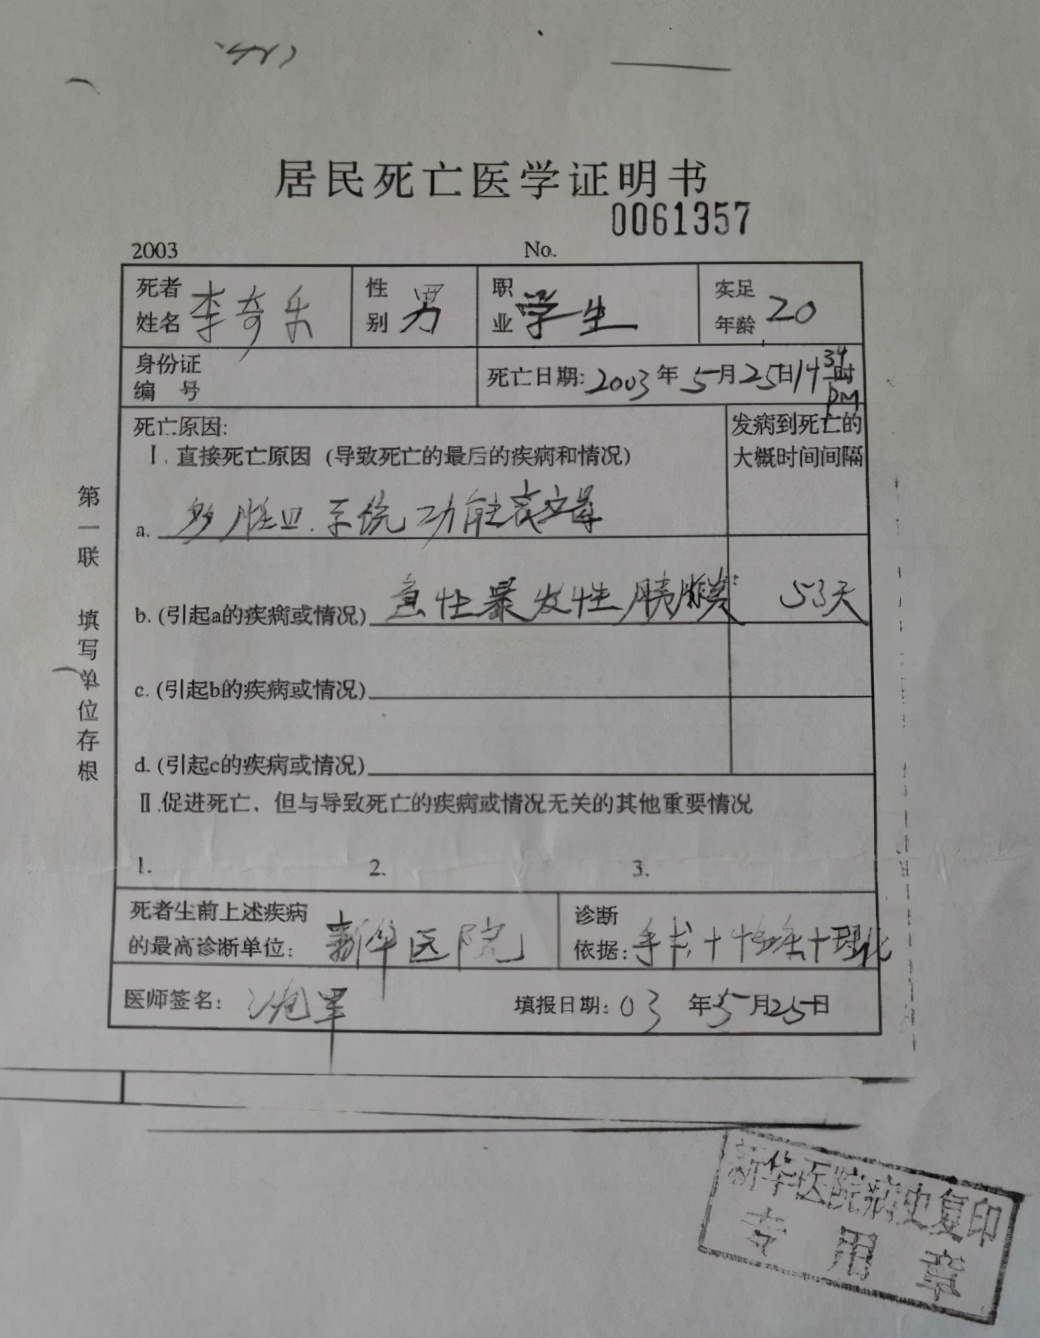 居民死亡医学证明书
0061357
2003 No.
死者姓名 李奇乐 性别 男 职业 学生 实足年龄 20
身份证编号 死亡日期：2003年5月25日14 34时 PM
死亡原因： 发病到死亡的大概时间间隔
Ⅰ.直接死亡原因（导致死亡的最后的疾病和情况）
a. 多脏四.系统功能衰竭
b.(引起a的疾病或情况) 急性暴发性胰腺炎 53天
c.(引起b的疾病或情况)
d.(引起c的疾病或情况)
Ⅱ.促进死亡，但与导致死亡的疾病或情况无关的其他重要情况
1. 2. 3.
死者生前上述疾病的最高诊断单位： 新华医院 诊断依据：手术++理化
医师签名： 填报日期：03年5月25日
第一联 填写单位存根
新华医院病史复印
专用章